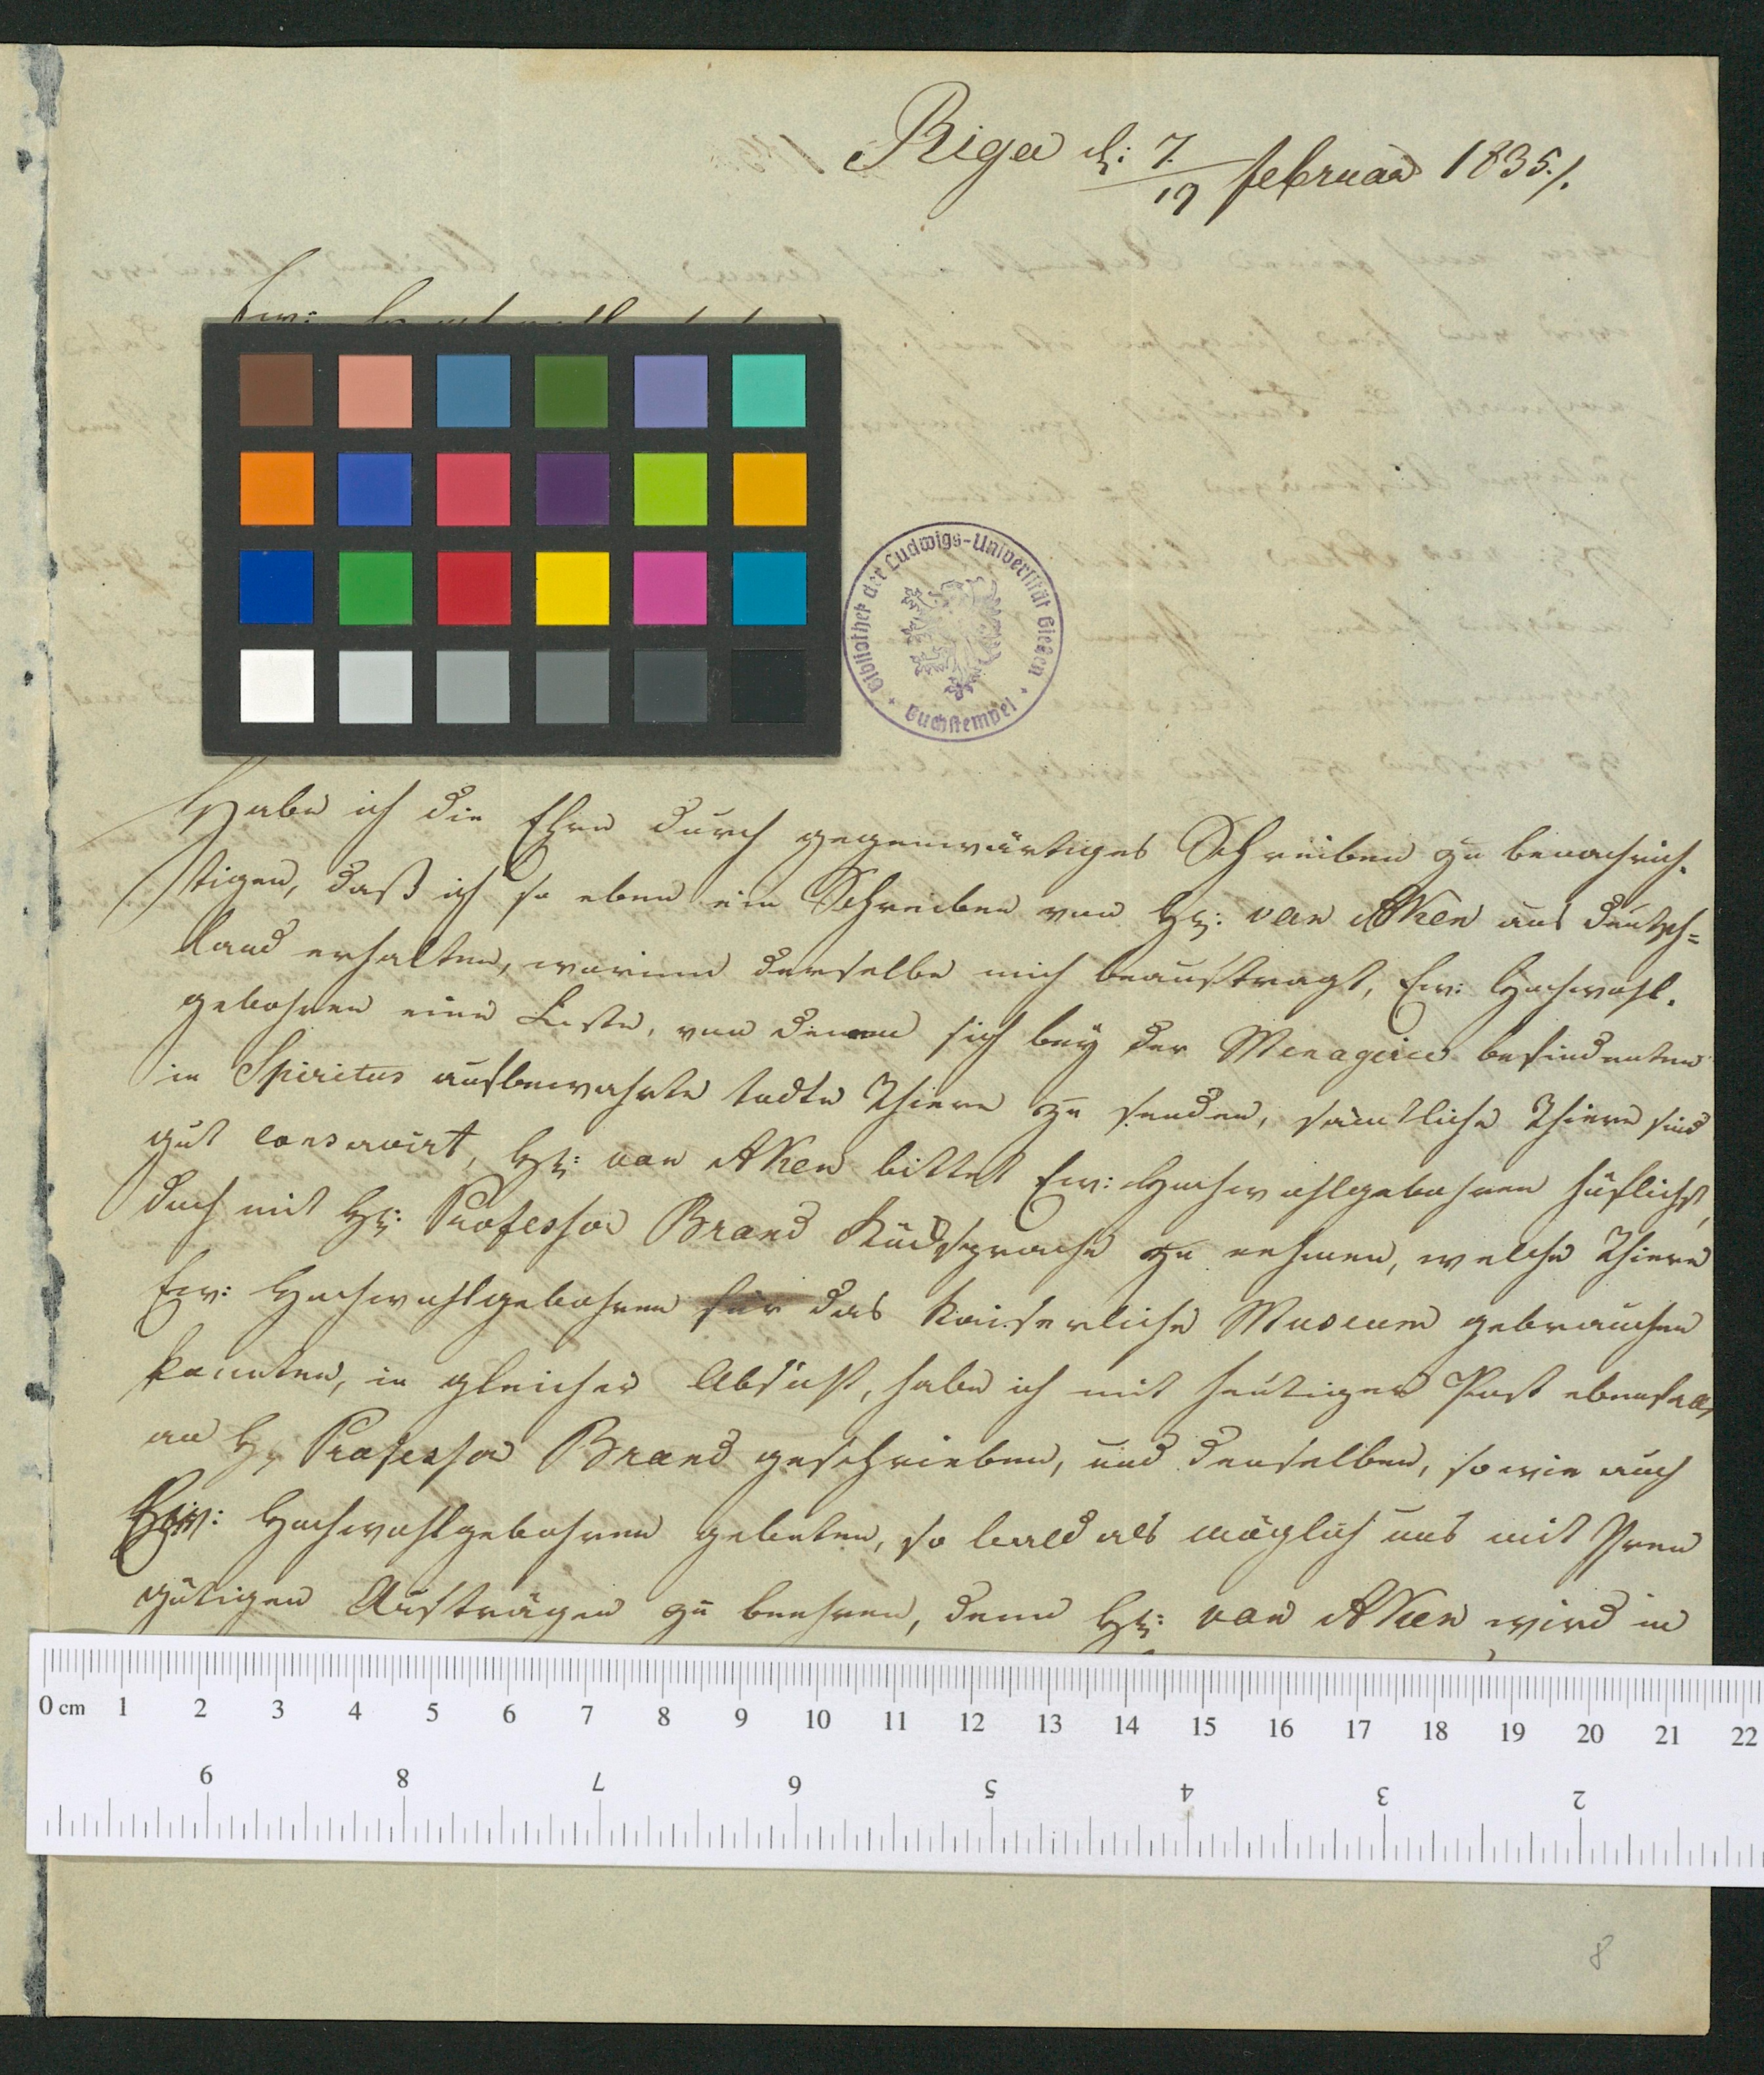 Riga d: 7./19 Februar 1835./.
Ew:
Bibliothek der Ludwigs-Universität Gießen
Buchstempel
Habe ich die Ehre durch gegenwärtiges Schreiben zu benachrich-
tigen, daß ich so eben ein Schreiben von Hr: van Aken aus Deutsch=
land erhalten, worinn derselbe mich beauftragt, Ew: Hochwohl-
gebohren eine Liste, von denen sich bey der Menagerie befindenten
in Spiritus aufbewahrte todte Thiere zu senden, sämtliche Thiere sind
gut conservirt, Hr: van Aken bittet Ew: Hochwohlgebohren höflichst,
doch mit Hr: Professor Brand Rücksprache zu nehmen, welche Thiere
Ew: Hochwohlgebohren für das Kaiserliche Museum gebrauchen
konnten, in gleicher Absicht, habe ich mit heutiger Post ebenfalls
an Hr Professor Brand geschrieben, und denselben, so wie auch
Ew: Hochwohlgebohren gebeten, so bald als möglich uns mit Ihren
gütigen Aufträgen zu beehren, denn Hr: van Aken wird in
0 cm 1 2 3 4 5 6 7 8 9 10 11 12 13 14 15 16 17 18 19 20 21 22
9 8 7 6 5 4 3 2
8